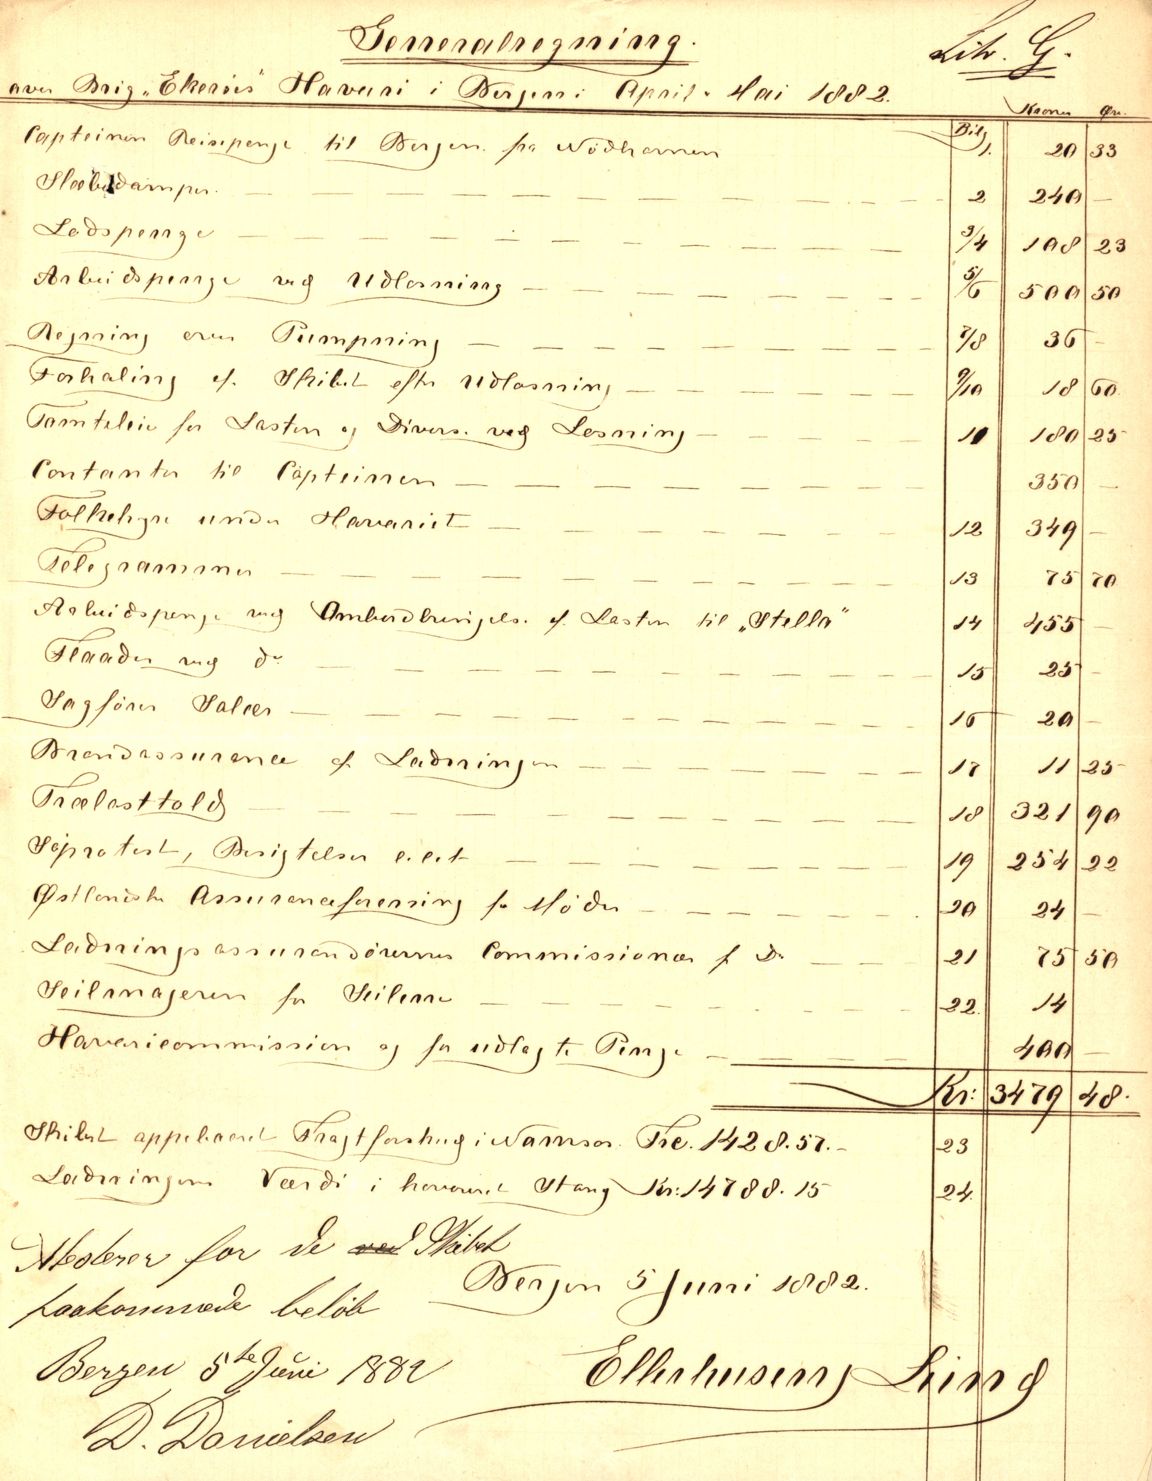 Generalregning.
Litr. G.
over Brig „Ekeröes" Havari i Bergen i April - Mai 1882.
Kroner Øre.
Bilg
Capteinen Reisepenge til Bergen fra Nödhavnen 1. 20 33
Slæbedamper. 2 240 —
Lodspenge 3/4 108 23
Arbeidspenge ved Udlosning 5/6 500 50
Regning over Pumpning 7/8 36 —
Forhaling af Skibet efter Udlosning 9/10 18 60
Tomteleie for Lasten og Divers. ved Losning 11 180 25
Contanter til Capteinen 350 —
Folkehyre under Havariet 12 349 —
Telegrammer 13 75 70
Arbeidspenge ved Ombordbringels. af Lasten til „Stella" 14 455 —
Flaader ved do 15 25 —
Sagförer Salær 16 20 —
Brandassurance af Ladningen 17 11 25
Trælasttold 18 321 90
Söprotest, Besigtelser e.c.t 19 254 22
Østlandske Assuranceforening for Möder 20 24 —
Ladningsassurandörernes Commissionær f. Do 21 75 50
Seilmageren for Seilene 22. 14
Havericommission og for udlagte Penge 400 —
Kr: 3479 48.
Skibet oppebaaret Fragtforskud i Namsos. Frc. 1428.57.- 23
Ladningens Værdi i havareret Stand Kr: 14788.15 24.
Attesterer for de ved Skibet
paakommede beløb
Bergen 5 Juni 1882.
Bergen 5te Juni 1882
Ellerhusen Lund
D. Danielsen